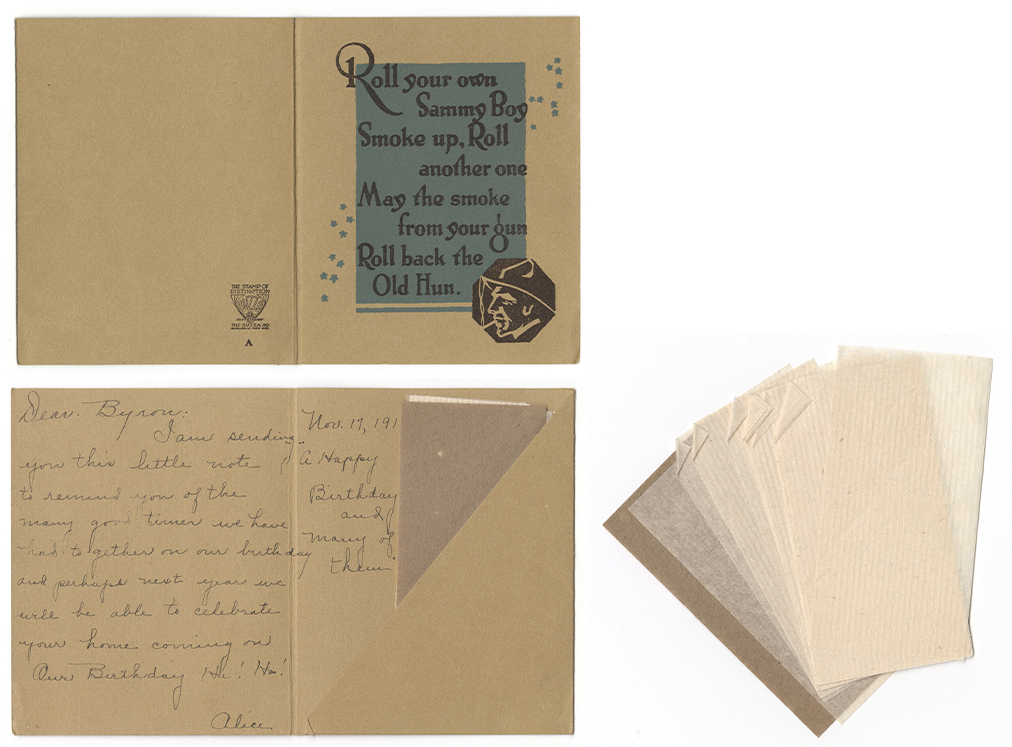 Roll your own
Sammy Boy
Smoke up, Roll
another one
May the smoke
from your gun
Roll back the
Old Hun.
THE STAMP OF
DISTINCTION
THE BUZZA CO
A
Dear Byron:
I am sending
you this little note
to remind you of the
many good times we have
had together on our birthday
and perhaps next year we
will be able to celebrate
your home coming on
Our Birthday He! Ha!
Alice
Nov. 17, 191
A Happy
Birthday
and
many of
them